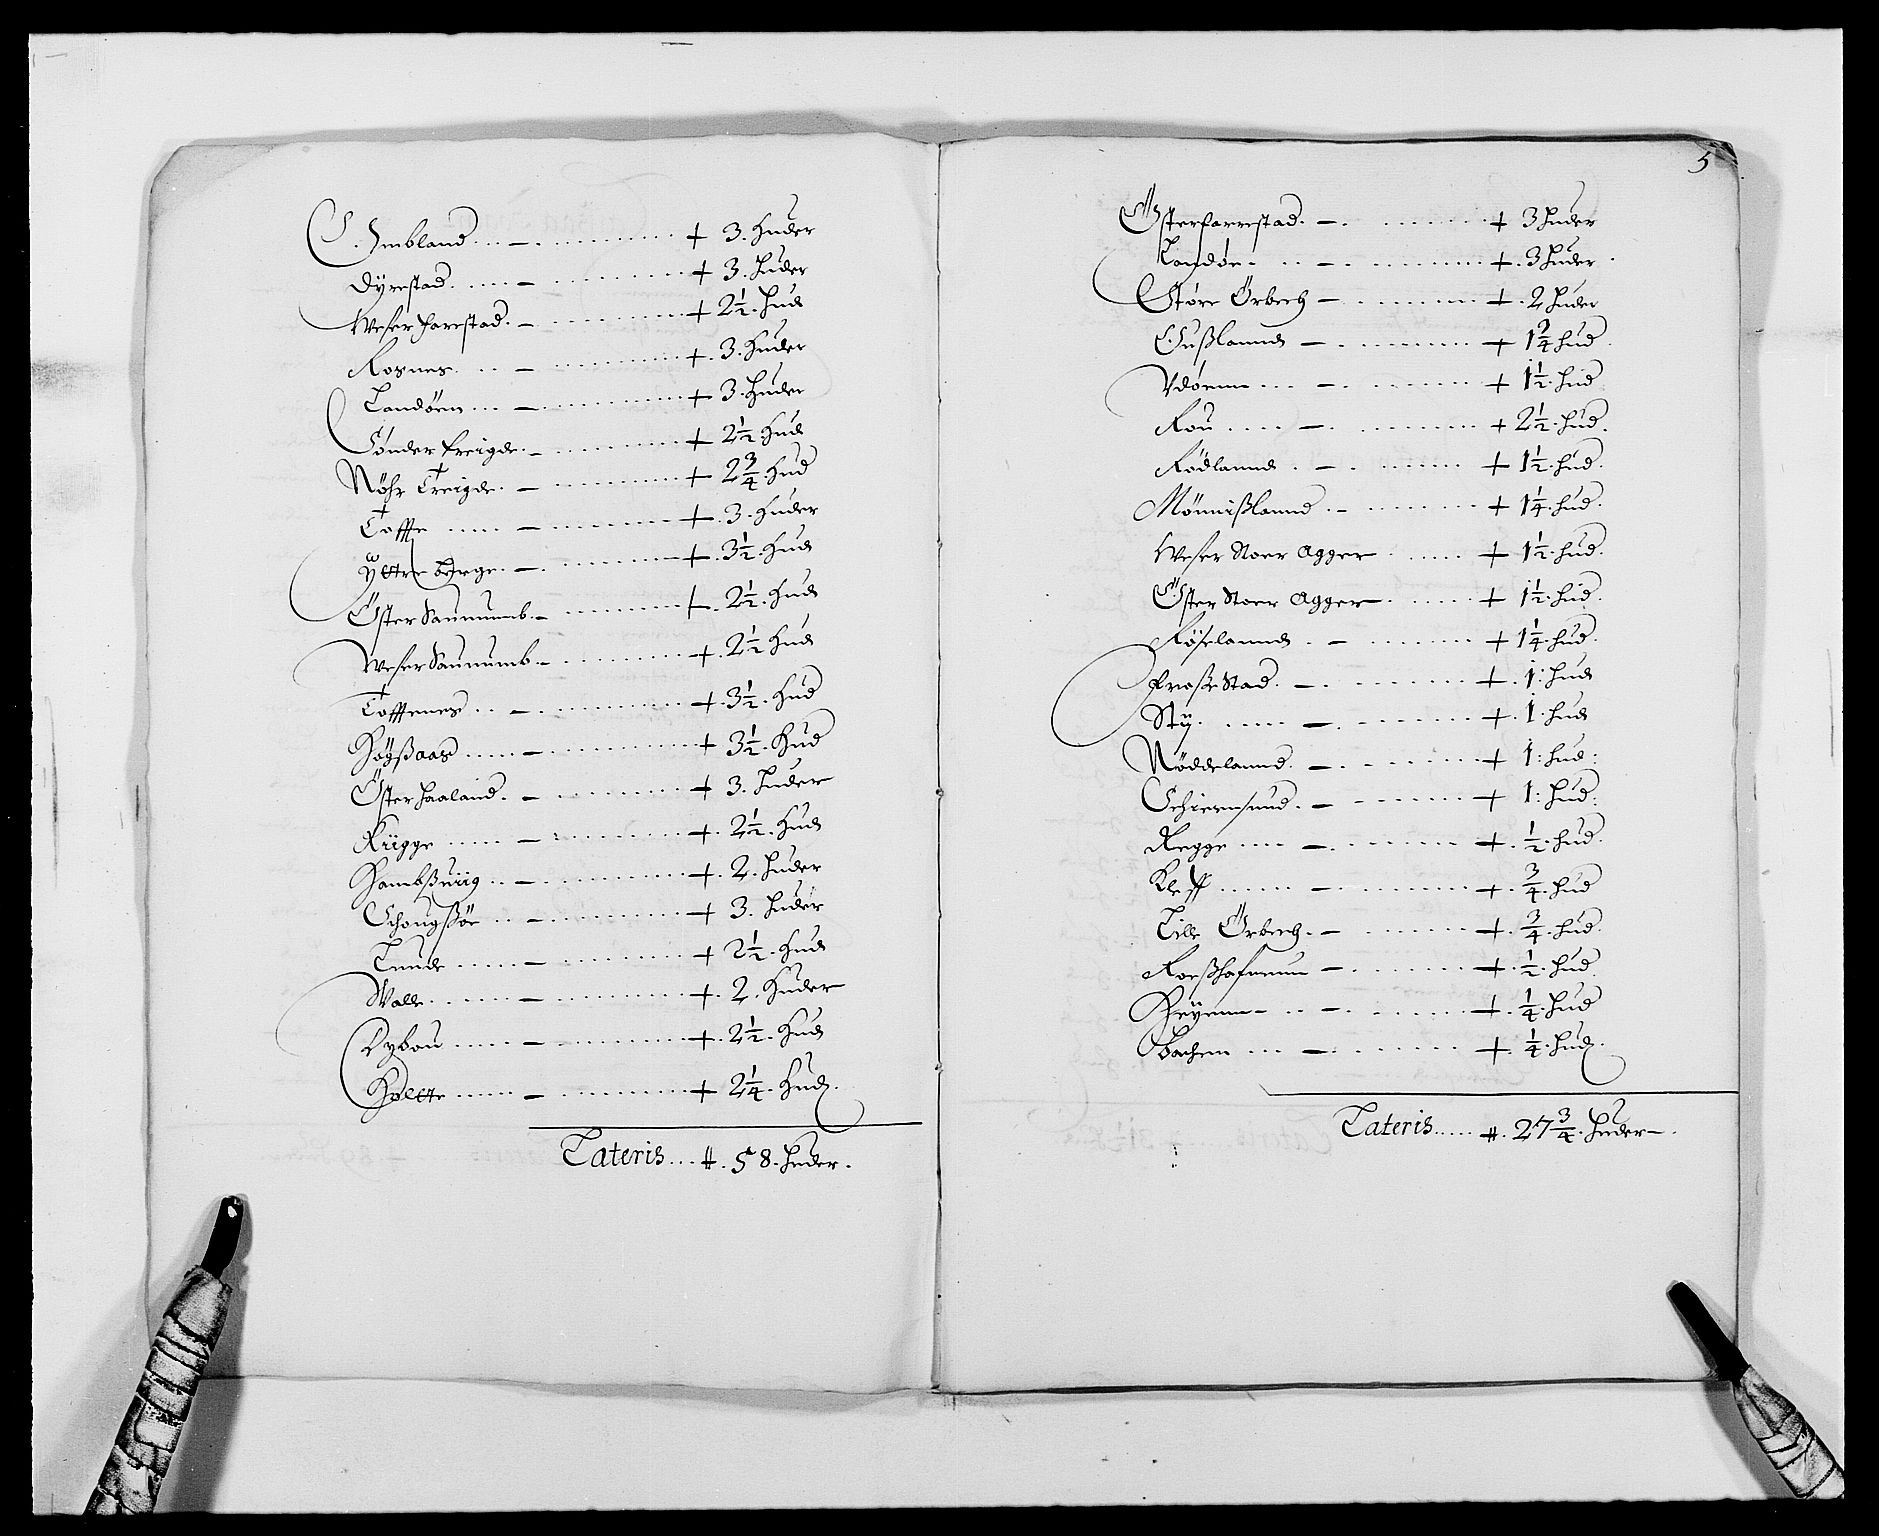 S. Imbland .. – . ........ + 3. Huder
Dyrestad ..... – ........ + 3. Huder
Wester Farestad. – ........ + 2½. Hud
Rosnes. .. – ........ + 3. Huder
Landøen ... – ........ + 3. Huder
Sønder Freigde. – ........ + 2½ Hud
Nöhr Treigde. – ........ + 2¾. Hud
Toffte ..... – ........ + 3. Huder
Yttre berge. – ........ + 3½. Hud
Öster Sannumb. – ........ + 2½. Hud
Wester Sannumb. – ........ + 2½ Hud
Tofftenes .. – ........ + 3½. Hud
Høgßaas ..... – ........ + 3½. Hud
Öster Haaland. – ........ + 3. Huder
Rügge ..... – ........ + 2½. Hud
Hambßuiig .. – ........ + 2. Huder
Schougßöe .. – ........ + 3. Huder
Lunde ..... – ........ + 2½ Hud
Walle ...... – ........ + 2. Huder
Dybou ..... – ........ + 2½. Hud
Holtte ...... – ........ + 2¼. Hud.
Lateris ... #. 58. Huder.
5
Österfarestad. – . ........ + 3 Huder
Landøe. .. – ........ + 3 Huder.
Støre Örbech – ........ + 2 Huder
Gußlannd – ........ + 1¾ Hud.
Udøenn ... – ........ + 1½. Hud
Rou .... – ........ + 2½. Hud.
Rødlannd . – ........ + 1½. Hud.
Mönnißlannd . – ........ + 1¼. Hud.
Wester Stoer Agger ...... + 1½. Hud.
Öster Stoer Agger ...... + 1½. Hud.
Røselannd . – ........ + 1¼. Hud.
Froße Stad. – ........ + 1: Hud
Stÿ. ..... – ........ + 1. Hud
Nøddelannd. – ........ + 1: Hud:
Schiernsund. – ........ + 1: Hud:
Regge .... – ........ + ½. Hud.
Kleff ...... – ........ + ¾. Hud
Lille Örbech. – ........ + ¾. Hud.
Roeßhafmunn – ........ + ½. Hud
Heÿenn – .. – ........ + ¼. Hud
Bachen ... – ........ + ¼. Hud.
Lateris ..... #. 27¾. Huder –.